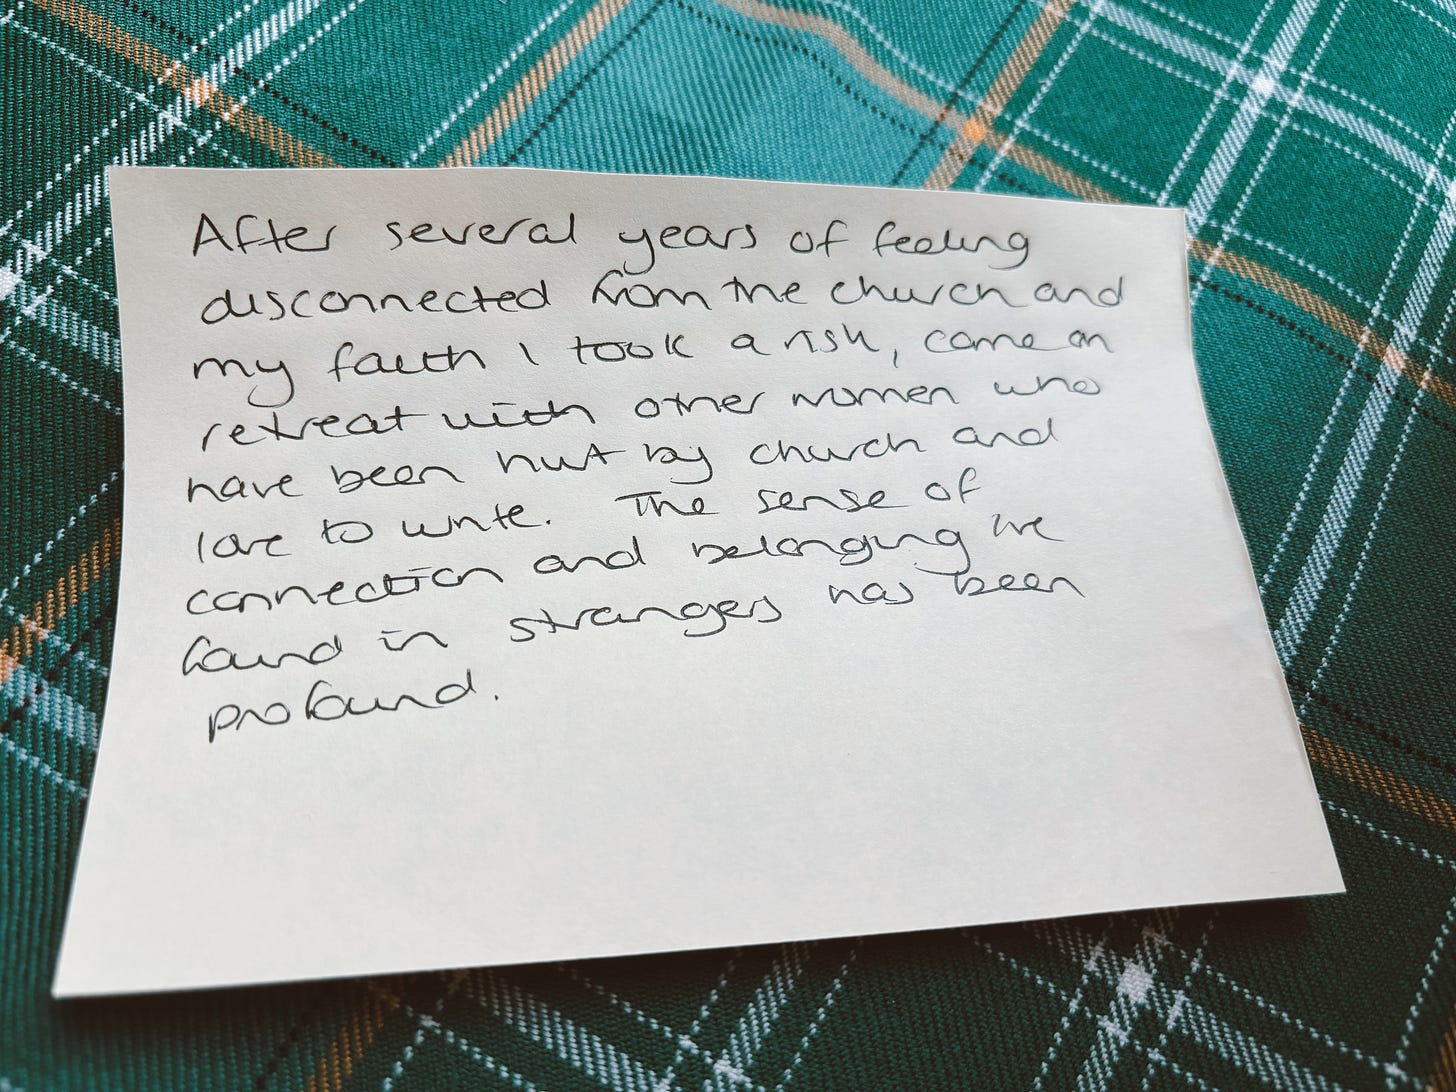 After several years of feeling
disconnected from the church and
my faith I took a risk, came on
retreat with other women who
have been hurt by church and
love to write. The sense of
connection and belonging I've
found in strangers has been
profound.